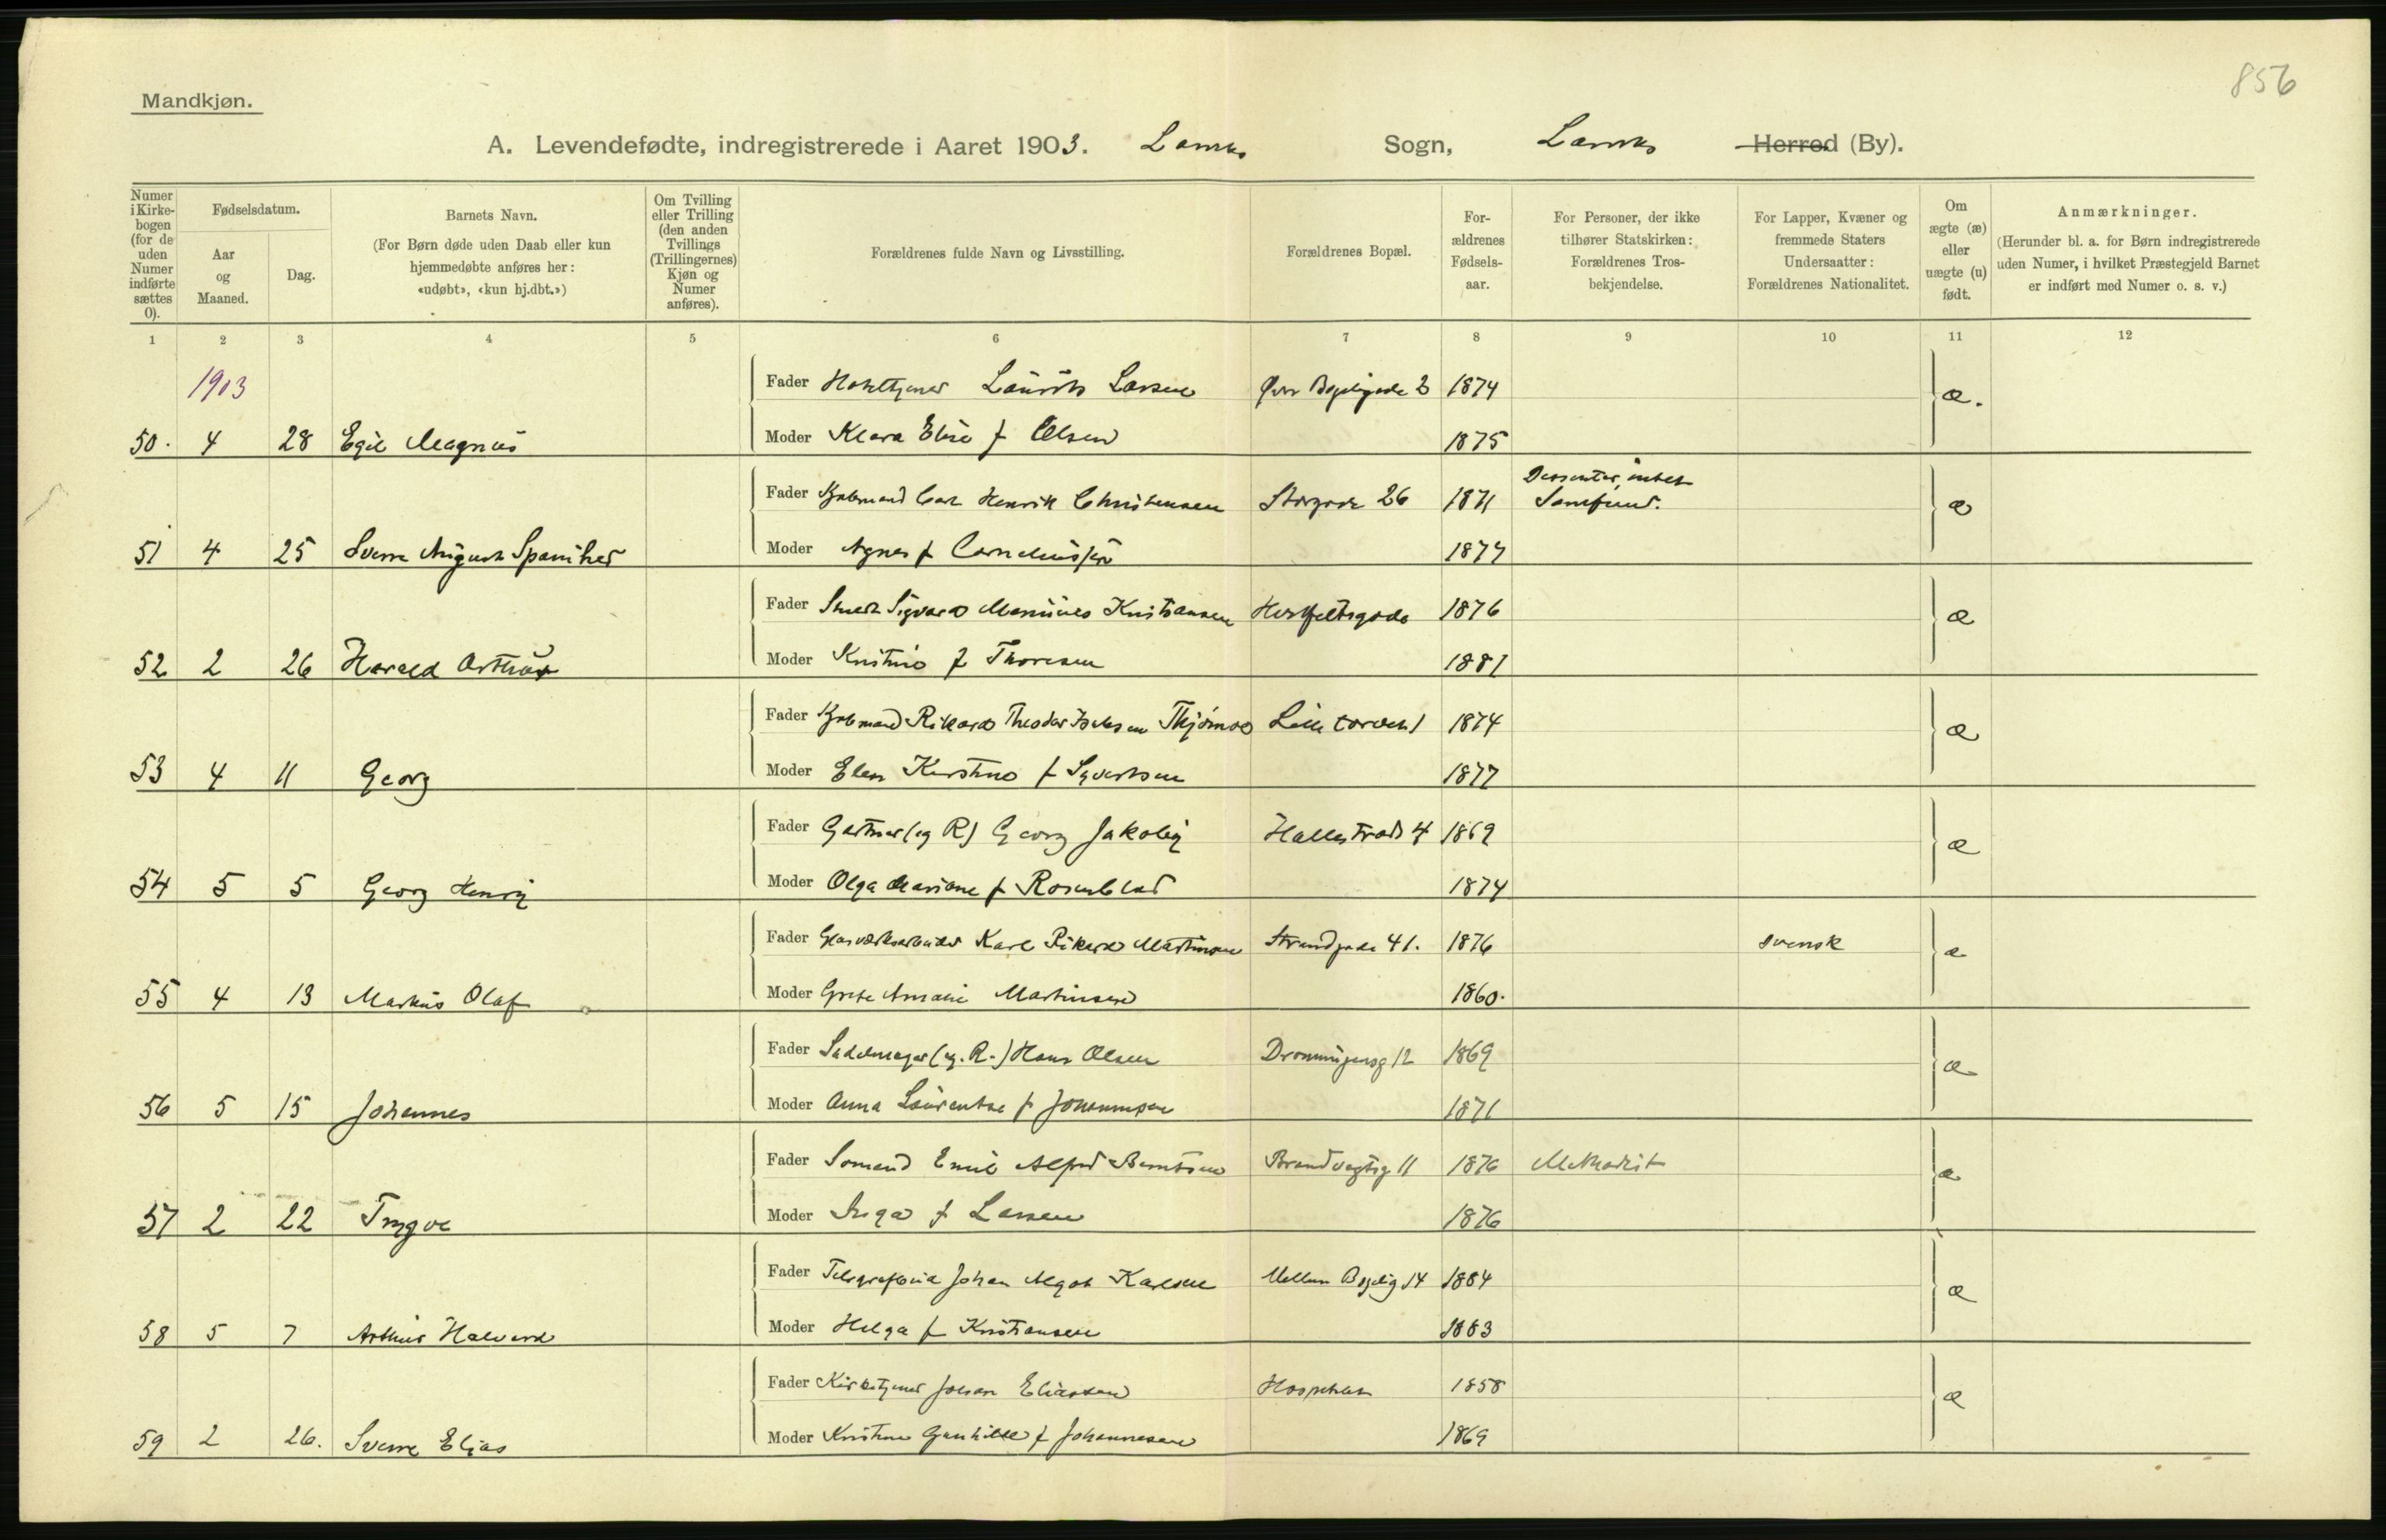 856
Mandkjøn.
A. Levendefødte, indregistrerede i Aaret 1903. Larviks Sogn, Larviks Herred (By).
Numer i Kirke-bogen (for de uden Numer indførte sættes 0).
Fødselsdatum.
Aar og Maaned.
Dag.
Barnets Navn.
(For Børn døde uden Daab eller kun hjemmedøbte anføres her: «udøbt», «kun hj.dbt.»)
Om Tvilling eller Trilling (den anden Tvillings (Trillingernes) Kjøn og Numer anføres).
Forældrenes fulde Navn og Livsstilling.
Forældrenes Bopæl.
For-ældrenes Fødsels-aar.
For Personer, der ikke tilhører Statskirken: Forældrenes Tros-bekjendelse.
For Lapper, Kvæner og fremmede Staters Undersaatter: Forældrenes Nationalitet.
Om ægte (æ) eller uægte (u) født.
Anmærkninger.
(Herunder bl. a. for Børn indregistrerede uden Numer, i hvilket Præstegjeld Barnet er indført med Numer o. s. v.)
1 2 3 4 5 6 7 8 9 10 11 12
1903
Fader Hoteltjener Laurits Larsen Øvre Bøkeligade 2 1874 æ.
50. 4 28 Egil Magnus Moder Klara Elise f Olsen 1875
Fader Kjøbmand Carl Henrik Christensen Storgade 26 1871 Dissenter, intet Samfund. æ
51 4 25 Sverre August Moder Agnes f Corneliussen 1877
Fader Smed Sigvard Marinius Kristiansen Herfeltsgade 1876 æ
52 2 26 Harald Arthur Moder Kristine f Thoresen 1881
Fader Kjøbmand Rikard Theodor Isaksen Thjømøe Lille torvet 1 1874 æ
53 4 11 Georg Moder Elen Kirstine f Syvertsen 1877
Fader Gartner (eg R) Georg Jakoby 4 1869 æ
54 5 5 Georg Henry Moder Olga Mariane f Rosenblad 1874
Fader Glasværksarbeider Karl Rikard Martinsen Strandgade 41. 1876 svensk æ
55 4 13 Markus Olaf Moder Grete Amalie Martinsen 1860.
Fader Sadelmager (eg. R.) Hans Olsen Dronningensg 12 1869 æ
56 5 15 Johannes Moder Anna Laurentse f Johannsen 1871
Fader Sømand Emil Alfred Berntsen Brandvagtsg 11 1876 Methodist æ
57 2 22 Trygve Moder Inga f Larsen 1876
Fader Johan Algot Karlsen Mellem Bøkelig 14 1884 æ
58 5 7 Arthur Halvard Moder Helga f Kristiansen 1883
Fader Kirketjener Johan Eliassen Hospitalet 1858 æ
59 2 26. Sverre Elias Moder Kristine Gunhilde f Johannesen 1869